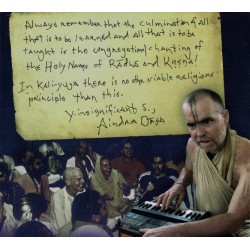 Always remember that the culmination of all
that is to be learned and all that is to be
taught is the congregational chanting of
the Holy Names of Rādhā and Kṛṣṇa!
In Kali-yuga there is no other viable religious
principle than this.
Y. insignificant s.,
Aindra Dāsa